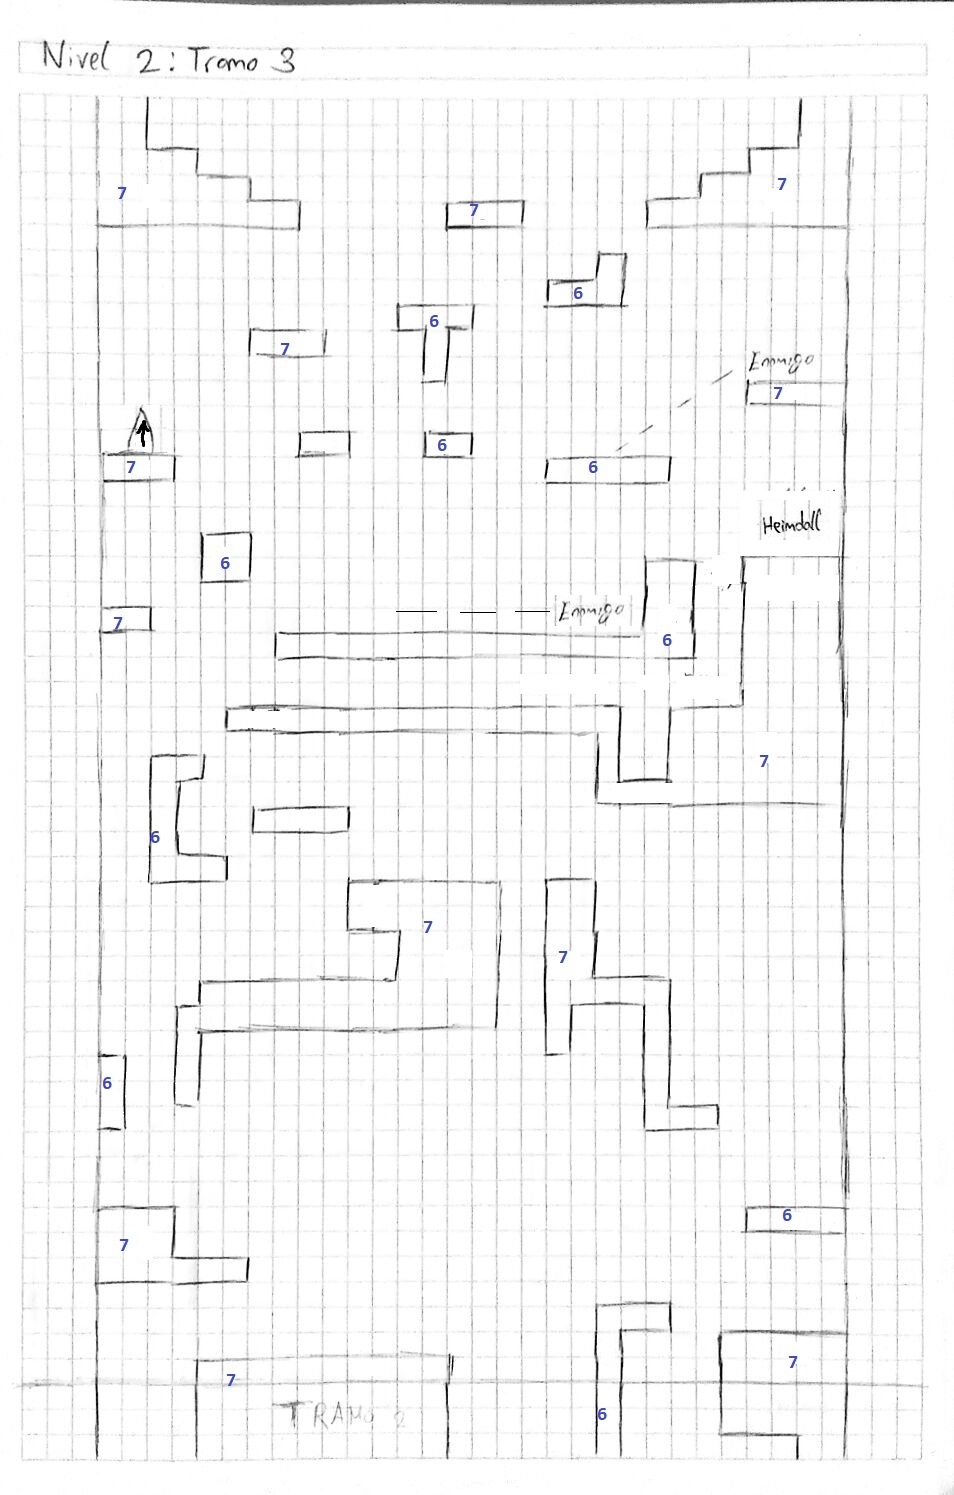 Nivel 2: Tramo 3
7
7
7
6
6
7
Enemigo
7
7
6
6
Heimdall
6
7
Enemigo
6
7
6
7
7
6
6
7
7
7
6
TRAMO 2